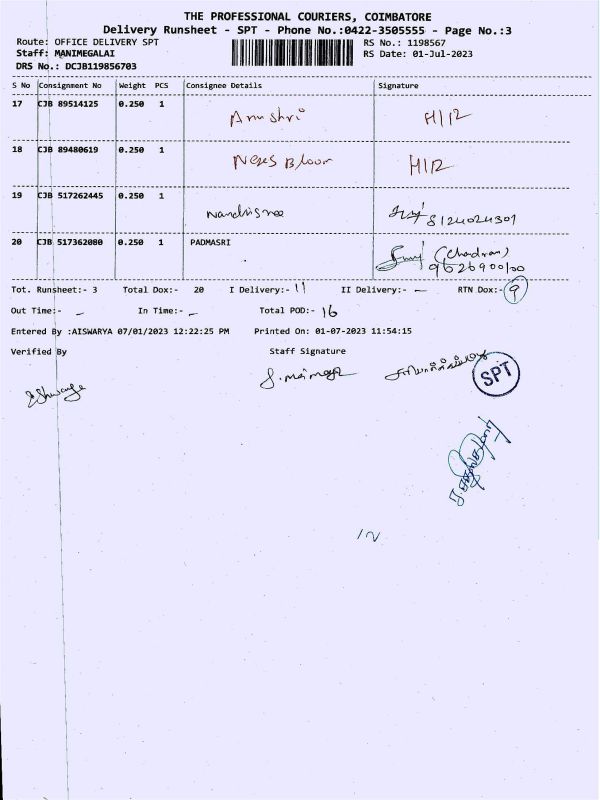 THE PROFESSIONAL COURIERS, COIMBATORE
Delivery Runsheet - SPT - Phone No.:0422-3505555 - Page No.:3
Route: OFFICE DELIVERY SPT RS No.: 1198567
Staff: MANIMEGALAI RS Date: 01-Jul-2023
DRS No.: DCJB119856703
S No Consignment No Weight PCS Consignee Details Signature
17 CJB 89514125 0.250 1 Anushri H/12
18 CJB 89480619 0.250 1 H/12
19 CJB 517262445 0.250 1 8124024301
20 CJB 517362080 0.250 1 PADMASRI (Chadran)
9626900100
Tot. Runsheet:- 3 Total Dox:- 20 I Delivery:- 11 II Delivery:- — RTN Dox:- 9
Out Time:- - In Time:- - Total POD:- 16
Entered By :AISWARYA 07/01/2023 12:22:25 PM Printed On: 01-07-2023 11:54:15
Verified By Staff Signature
SPT